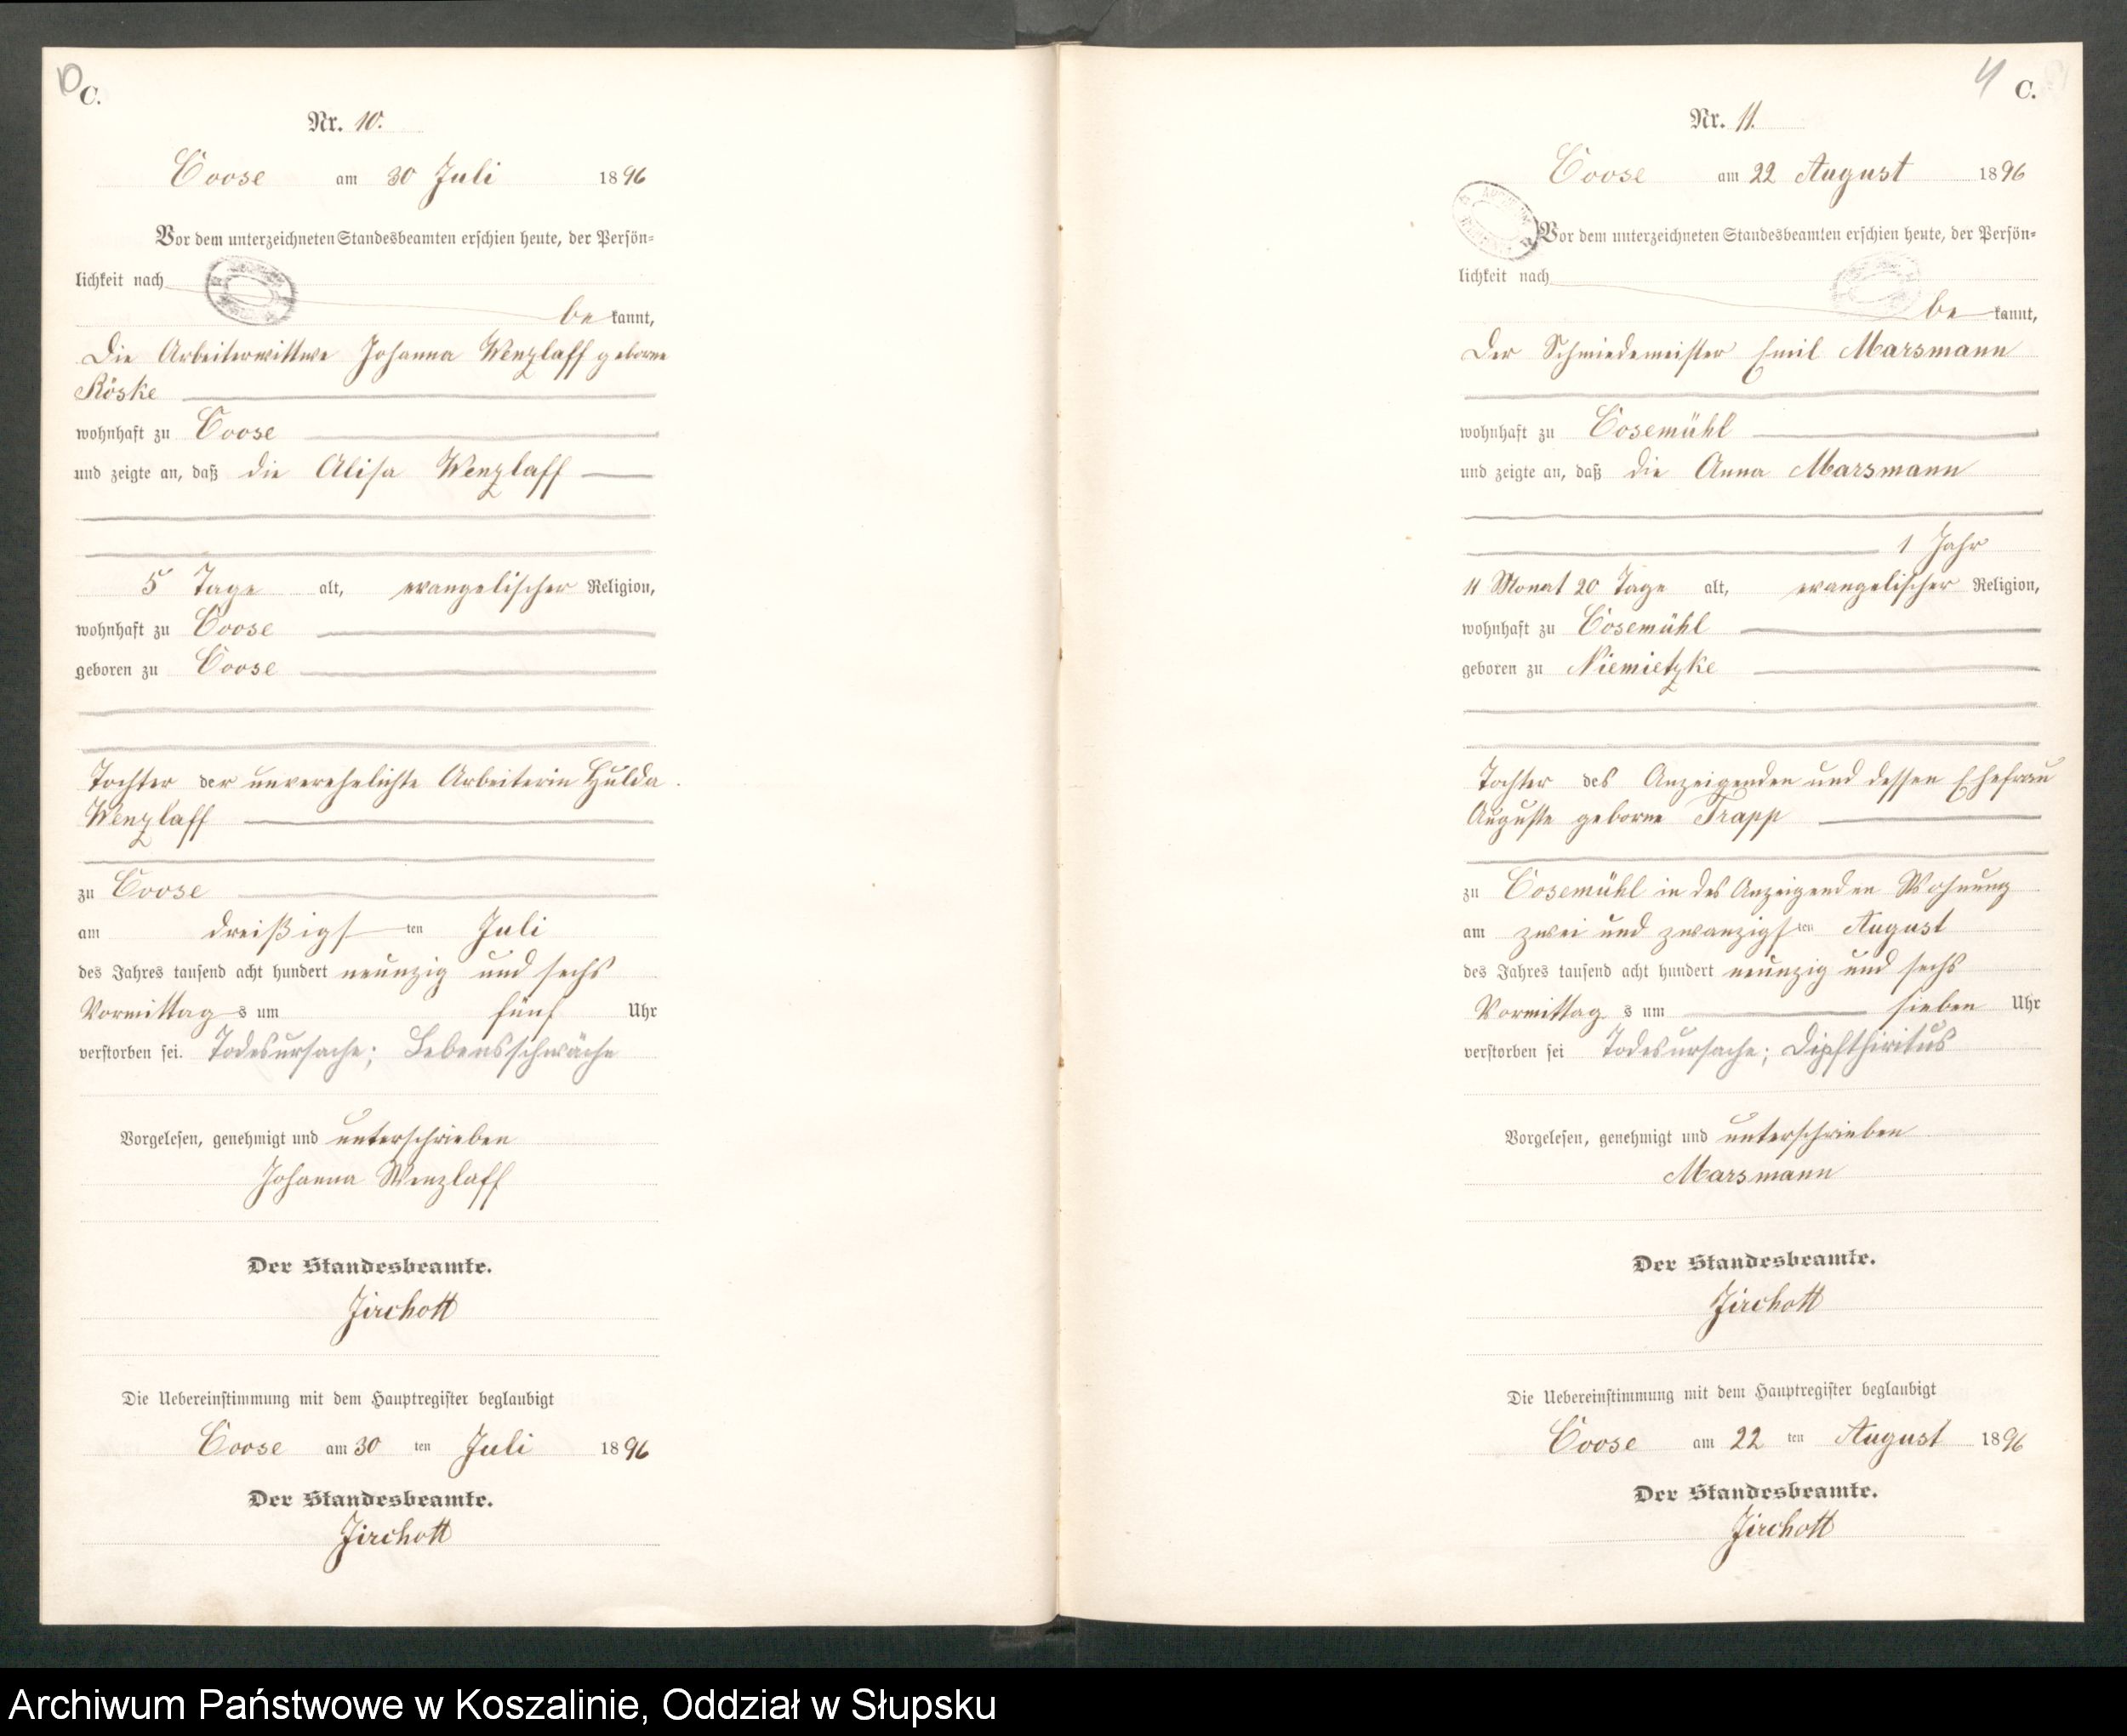 10
C.
Nr. 10.
Coose am 30 Juli 1896
Vor dem unterzeichneten Standesbeamten erschien heute, der Persön-
lichkeit nach
be kannt,
Die Arbeiterwittwe Johanna Wenzlaff geborne
Röske
wohnhaft zu Coose
und zeigte an, daß die Wenzlaff
5 Tage alt, evangelischer Religion,
wohnhaft zu Coose
geboren zu Coose
Tochter der unverehelichte Arbeiterin Hulda
Wenzlaff
zu Coose
am dreißigs ten Juli
des Jahres tausend acht hundert neunzig und sechs
Vormittag s um fünf Uhr
verstorben sei. Todesursache; Lebensschwäche
Vorgelesen, genehmigt und unterschrieben
Johanna Wenzlaff
Der Standesbeamte.
Jirchott
Die Uebereinstimmung mit dem Hauptregister beglaubigt
Coose am 30 ten Juli 1896
Der Standesbeamte.
Jirchott
C.
Nr. 11.
Coose am 22 August 1896
Vor dem unterzeichneten Standesbeamten erschien heute, der Persön-
lichkeit nach
be kannt,
Der Schmiedemeister Emil Marsmann
wohnhaft zu Cosemühl
und zeigte an, daß die Anna Marsmann
1 Jahr
11 Monat 20 Tage alt, evangelischer Religion,
wohnhaft zu Cosemühl
geboren zu Niemietzke
Tochter des Anzeigenden und dessen Ehefrau
Auguste geborne Trapp
zu Cosemühl in des Anzeigenden Wohnung
am zwei und zwanzigs ten August
des Jahres tausend acht hundert neunzig und sechs
Vormittag s um sieben Uhr
verstorben sei Todesursache; Dipftheritus
Vorgelesen, genehmigt und unterschrieben
Marsmann
Der Standesbeamte.
Jirchott
Die Uebereinstimmung mit dem Hauptregister beglaubigt
Coose am 22 ten August 1896
Der Standesbeamte.
Jirchott
Archiwum Państwowe w Koszalinie, Oddział w Słupsku